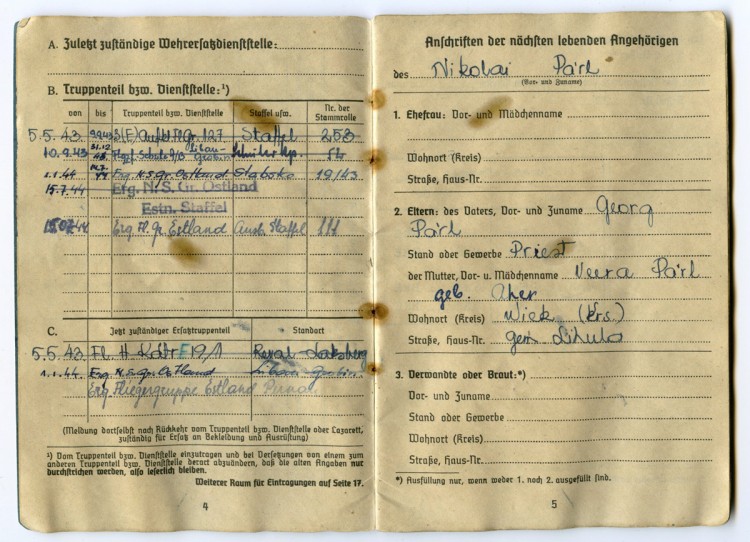 A. Zuletzt zuständige Wehrersatzdienststelle:
B. Truppenteil bzw. Dienststelle:¹)
von bis Truppenteil bzw. Dienststelle Staffel usw. Nr. der Stammrolle
5.5.43 9.9.43 S(E) Aufkl. Fl. Gr. 127 Staffel 253
10.9.43 31.12. Schule Libau-Grobin Schüler Kp.
1.1.44 14.7.44 Erg. N.S.Gr. Ostland Stabskp 19/43
15.7.44 Erg. N.S. Gr. Ostland
Estn. Staffel
15.07.44 Erg. Fl. Gr. Estland Ausb. Staffel 111
C. Jetzt zuständiger Ersatztruppenteil Standort
5.5.43 Fl. H. Kdtr E 19/1 Reval-Laksberg
1.1.44 Erg. N.S.Gr. Ostland Libau Grobin
Erg Fliegergruppe Estland Pernau
(Meldung dortselbst nach Rückkehr vom Truppenteil bzw. Dienststelle oder Lazarett,
zuständig für Ersatz an Bekleidung und Ausrüstung)
¹) Vom Truppenteil bzw. Dienststelle einzutragen und bei Versetzungen von einem zum
anderen Truppenteil bzw. Dienststelle derart abzuändern, daß die alten Angaben nur
durchstrichen werden, also leserlich bleiben.
Weiterer Raum für Eintragungen auf Seite 17.
4
Anschriften der nächsten lebenden Angehörigen
des Nikolai Pärl
(Vor- und Zuname)
1. Ehefrau: Vor- und Mädchenname
Wohnort (Kreis)
Straße, Haus-Nr.
2. Eltern: des Vaters, Vor- und Zuname Georg
Pärl
Stand oder Gewerbe Priest
der Mutter, Vor- u. Mädchenname Veera Pärl
geb.
Wohnort (Kreis) Wiek (Krs.)
Straße, Haus-Nr. gem. Lihula
3. Verwandte oder Braut:*)
Vor- und Zuname
Stand oder Gewerbe
Wohnort (Kreis)
Straße, Haus-Nr.
*) Ausfüllung nur, wenn weder 1. noch 2. ausgefüllt sind.
5